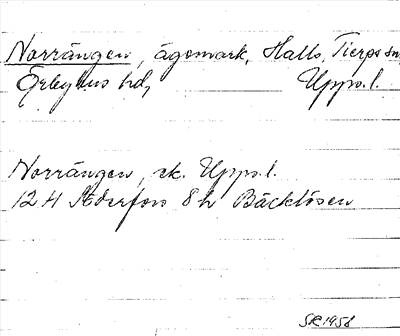 Norrängen, ägomark, Halls, Tierps sn,
Örbyhus hd, Upps.l.
Norrängen, ek. Upps.l.
12 H Söderfors 8 h Bäcklösen
SR 1958